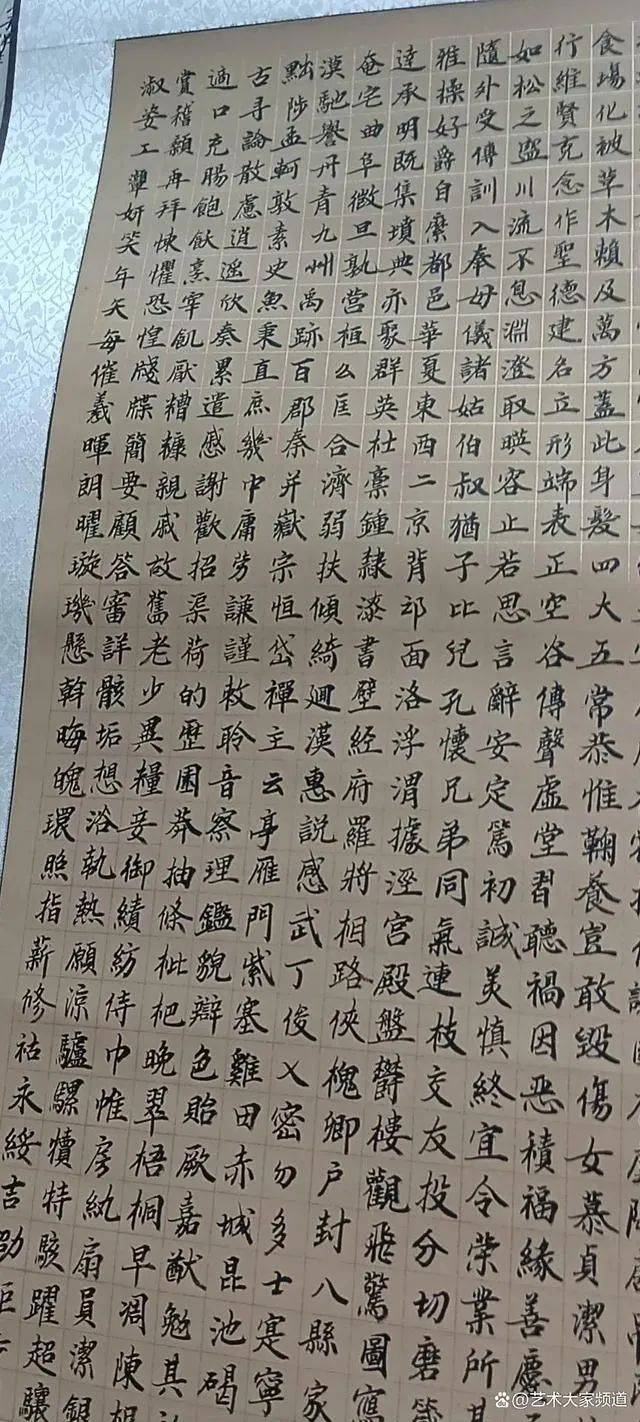 食場化被草木賴及萬方蓋此身髮四大五常恭惟鞠養豈敢毀傷女慕貞潔男
行維賢克念作聖德建名立形端表正空谷傳聲虛堂習聽禍因惡積福緣善慶
如松之盛川流不息淵澄取暎容止若思言辭安定篤初誠美慎終宜令榮業所
隨外受傅訓入奉母儀諸姑伯叔猶子比兒孔懷兄弟同氣連枝交友投分切磨
雅操好爵自縻都邑華夏東西二京背邙面洛浮渭據涇宮殿盤鬱樓觀飛驚圖寫
達承明既集墳典亦聚群英杜稾鍾隸漆書壁經府羅將相路俠槐卿户封八縣家
奄宅曲阜微旦孰營桓么匡合濟弱扶傾綺迴漢惠說感武丁俊乂密勿多士寔寧
漠馳譽丹青九州禹跡百郡秦并嶽宗恒岱禪主云亭雁門紫塞雞田赤城昆池碣
黜陟孟軻敦素史魚秉直庶幾中庸勞謙謹敕聆音察理鑑貌辯色貽厥嘉猷勉其
古尋論散慮逍遥欣奏累遣感謝歡招渠荷的歷園莽抽條枇杷晚翠梧桐早凋陳根
適口充腸飽飫烹宰飢厭糟糠親戚故舊老少異糧妾御績紡侍巾帷房紈扇員潔銀
賞稽顙再拜悚懼恐惶牋牒簡要顧答審詳骸垢想浴執熱願涼驢騾犢特駭躍超驤
淑姿工顰妍笑年矢每催羲暉朗曜璇璣懸斡晦魄環照指薪修祜永綏吉劭矩
艺术大家频道